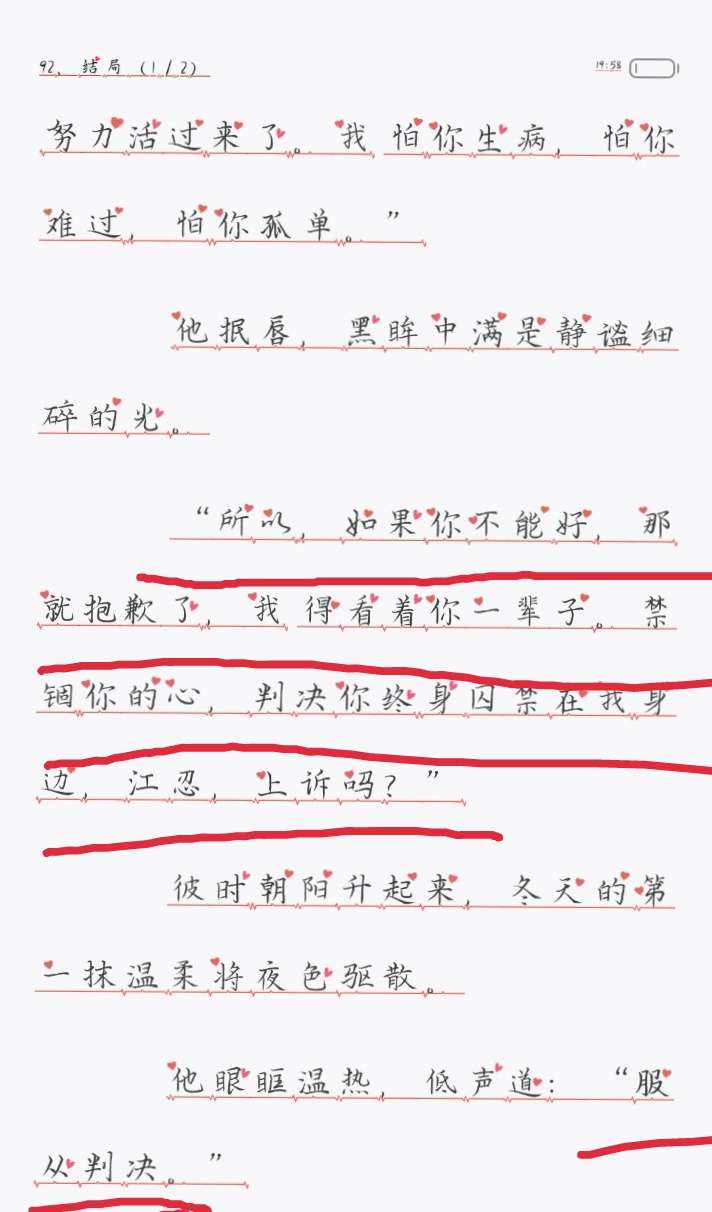 92、结局（1/2）
19:58
努力活过来了。我怕你生病，怕你
难过，怕你孤单。”
他抿唇，黑眸中满是静谧细
碎的光。
“所以，如果你不能好，那
就抱歉了，我得看着你一辈子。禁
锢你的心，判决你终身囚禁在我身
边，江忍，上诉吗？”
彼时朝阳升起来，冬天的第
一抹温柔将夜色驱散。
他眼眶温热，低声道：“服
从判决。”